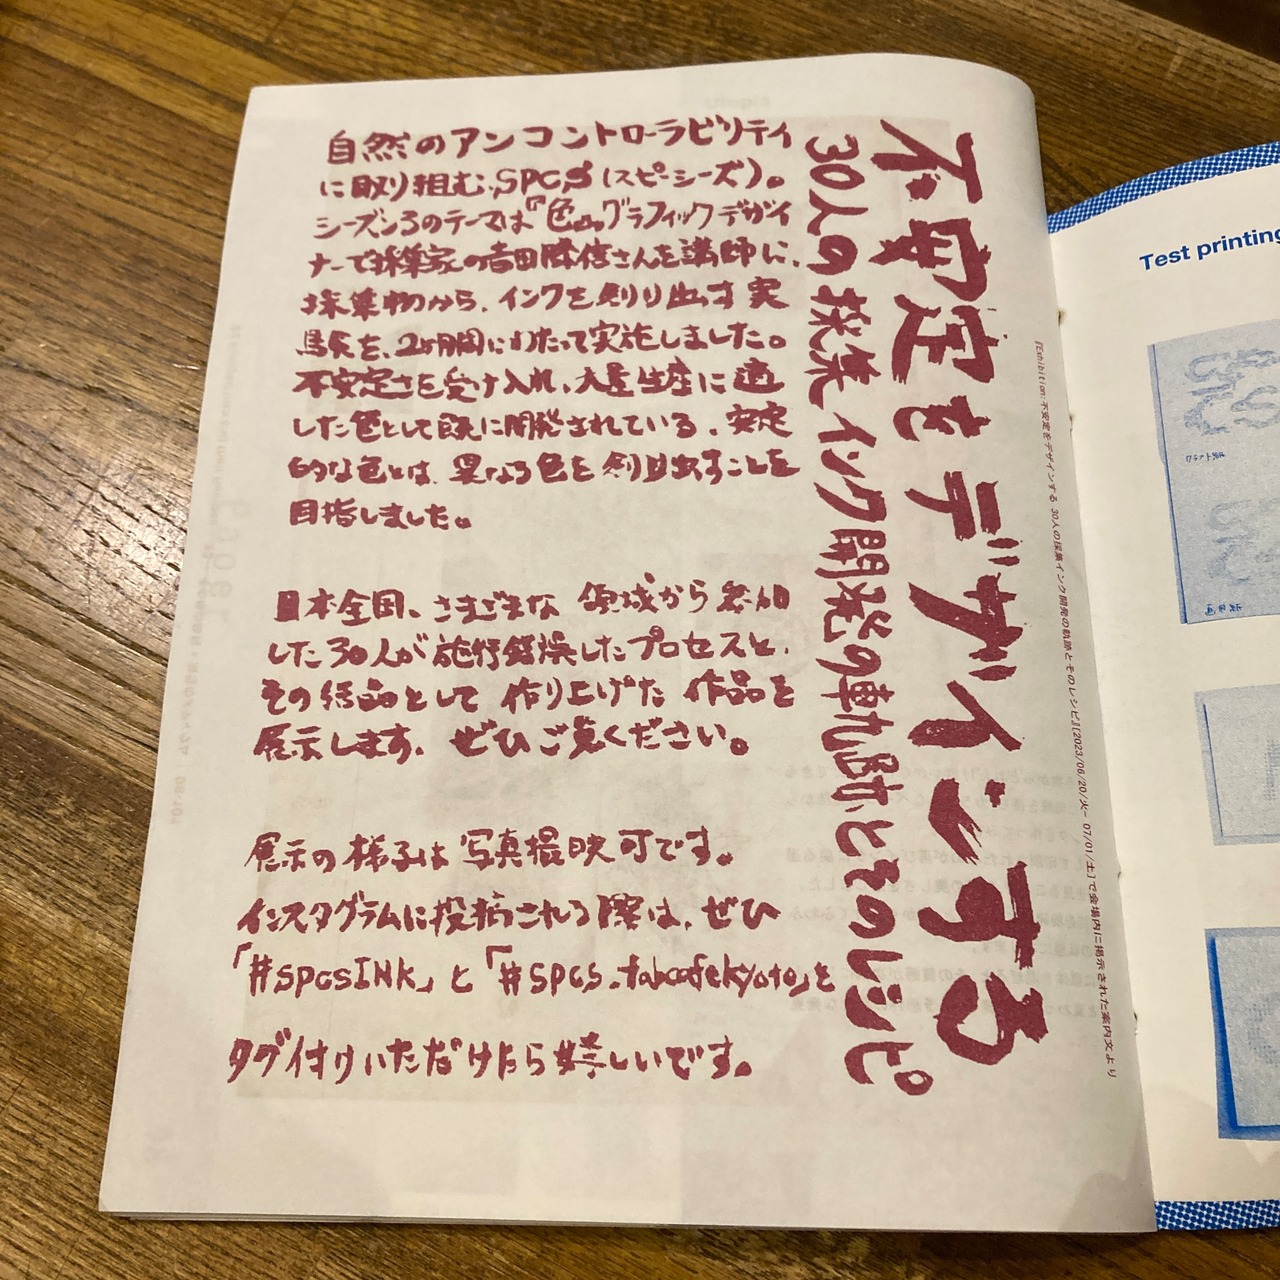 不安定をデザインする
30人の採集インク開発の軌跡とそのレシピ
自然のアンコントローラビリティ
に取り組む、SPCS(スピーシーズ)。
シーズン3のテーマは『色』。グラフィックデザイ
ナーで採集家の吉田勝信さんを講師に、
採集物から、インクを創り出す実
験を、2ヶ月間にわたって実施しました。
不安定さを受け入れ、大量生産に適
した色として既に開発されている、安定
的な色とは、異なる色を創り出すことを
目指しました。
日本全国、さまざまな 領域から参加
した30人が施行錯誤したプロセスと、
その結晶として 作り上げた 作品を
展示します。ぜひご覧ください。
展示の様子は写真撮映可です。
インスタグラムに投稿される際は、ぜひ
「#SPCSINK」と「#SPCS.fabcafekyoto」を
タグ付けいただけたら嬉しいです。
『Exhibition:不安定をデザインする 30人の採集インク開発の軌跡とそのレシピ』[2023/06/20/火– 07/01/土]で会場内に掲示された案内文より
Test printing
クラフト紙